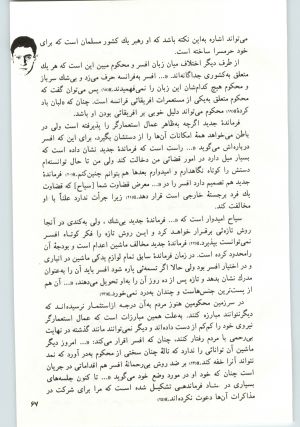 می‌تواند اشاره به‌این نکته باشد که او رهبر یك کشور مسلمان است که برای
خود حرمسرا ساخته است.
از طرف دیگر اختلاف میان زبان افسر و محکوم مبین این است که هر یك
متعلق به‌کشوری جداگانه‌اند. «... افسر به‌فرانسه حرف می‌زد و بی‌شك سرباز
و محکوم هیچ کدام‌شان این زبان را نمی‌فهمیدند. پس می‌توان گفت که
محکوم متعلق به‌یکی از مستعمرات افریقائی فرانسه است. چنان که «لبان باد
کردهٔ» محکوم می‌تواند دلیل خوبی بر افریقائی بودن او باشد.
فرماندهٔ جدید اگرچه به‌ظاهر عمال استعمارگر را پذیرفته است ولی در
باطن می‌خواهد همهٔ امکانات آن‌ها را از دستشان بگیرد، برای این که افسر
درباره‌اش می‌گوید: «... راست است که فرماندهٔ جدید نشان داده است که
بسیار میل دارد در امور قضائی من دخالت کند ولی من تا حال توانسته‌ام
دستش را کوتاه نگاهدارم و امیدوارم بعدها هم بتوانم چنین‌کنم. فرماندهٔ
جدید هم تصمیم دارد افسر را «... معرض قضاوت شما [سیاح] که قضاوت
یك فرد برجستهٔ خارجی است قرار دهد. زیرا جرأت ندارد علناً با او
مخالفت کند.
سیاح امیدوار است که «... فرماندهٔ جدید بی‌شك، ولی به‌کندی در آنجا
روش تازه‌ئی برقرار خواهد کرد و این روش تازه را فکر کوتاه افسر
نمی‌توانست بپذیرد. فرماندهٔ جدید مخالف ماشین اعدام است و بودجهٔ آن
رامحدود کرده است. در زمان فرماندهٔ سابق تمام لوازم یدکی ماشین در انباری
و در اختیار افسر بود ولی حالا اگر تسمه‌ئی پاره شود افسر باید آن را به‌عنوان
مدرك نشان بدهد و تازه پس از ده روز آن را به‌او تحویل می‌دهند، «... آن هم
از پست‌ترین جنس‌هاست و چندان به‌درد نمی‌خورد.
در سرزمین محکومین هنوز مردم به‌آن درجه ازاستثمار نرسیده‌اند که
دیگرنتوانند مبارزه کنند. به‌علت همین مبارزات است که عمال استعمارگر
نیروی خود را کم‌کم از دست داده‌اند و دیگر نمی‌توانند مانند گذشته در نهایت
بی‌رحمی با مردم رفتار کنند، چنان که افسر اقرار می‌کند: «... امروز دیگر
ماشین آن توانائی را ندارد که نالهٔ چنان سختی از محکوم به‌در آورد که نمد
نتواند آنرا خفه کند. بر ضد روش بی‌رحمانهٔ افسر هم اقداماتی در جریان
است چنان که خود او در مورد وضع خود می‌گوید «... تا کنون جلسه‌های
بسیاری در ستاد فرماندهی تشکیل شده است که مرا برای شرکت در
مذاکرات آن‌ها دعوت نکرده‌اند.
۶۷